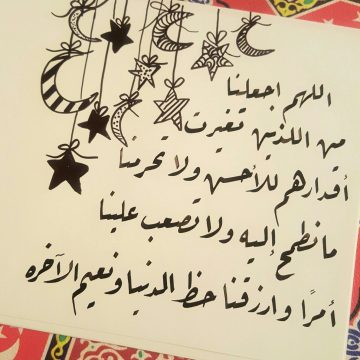 اللهم اجعلنا
من اللذين تغيرت
أقدارهم للأحسن ولا تحرمنا
مانطمح إليه ولا تصعب علينا
أمرًا وارزقنا حظ الدنيا ونعيم الآخره